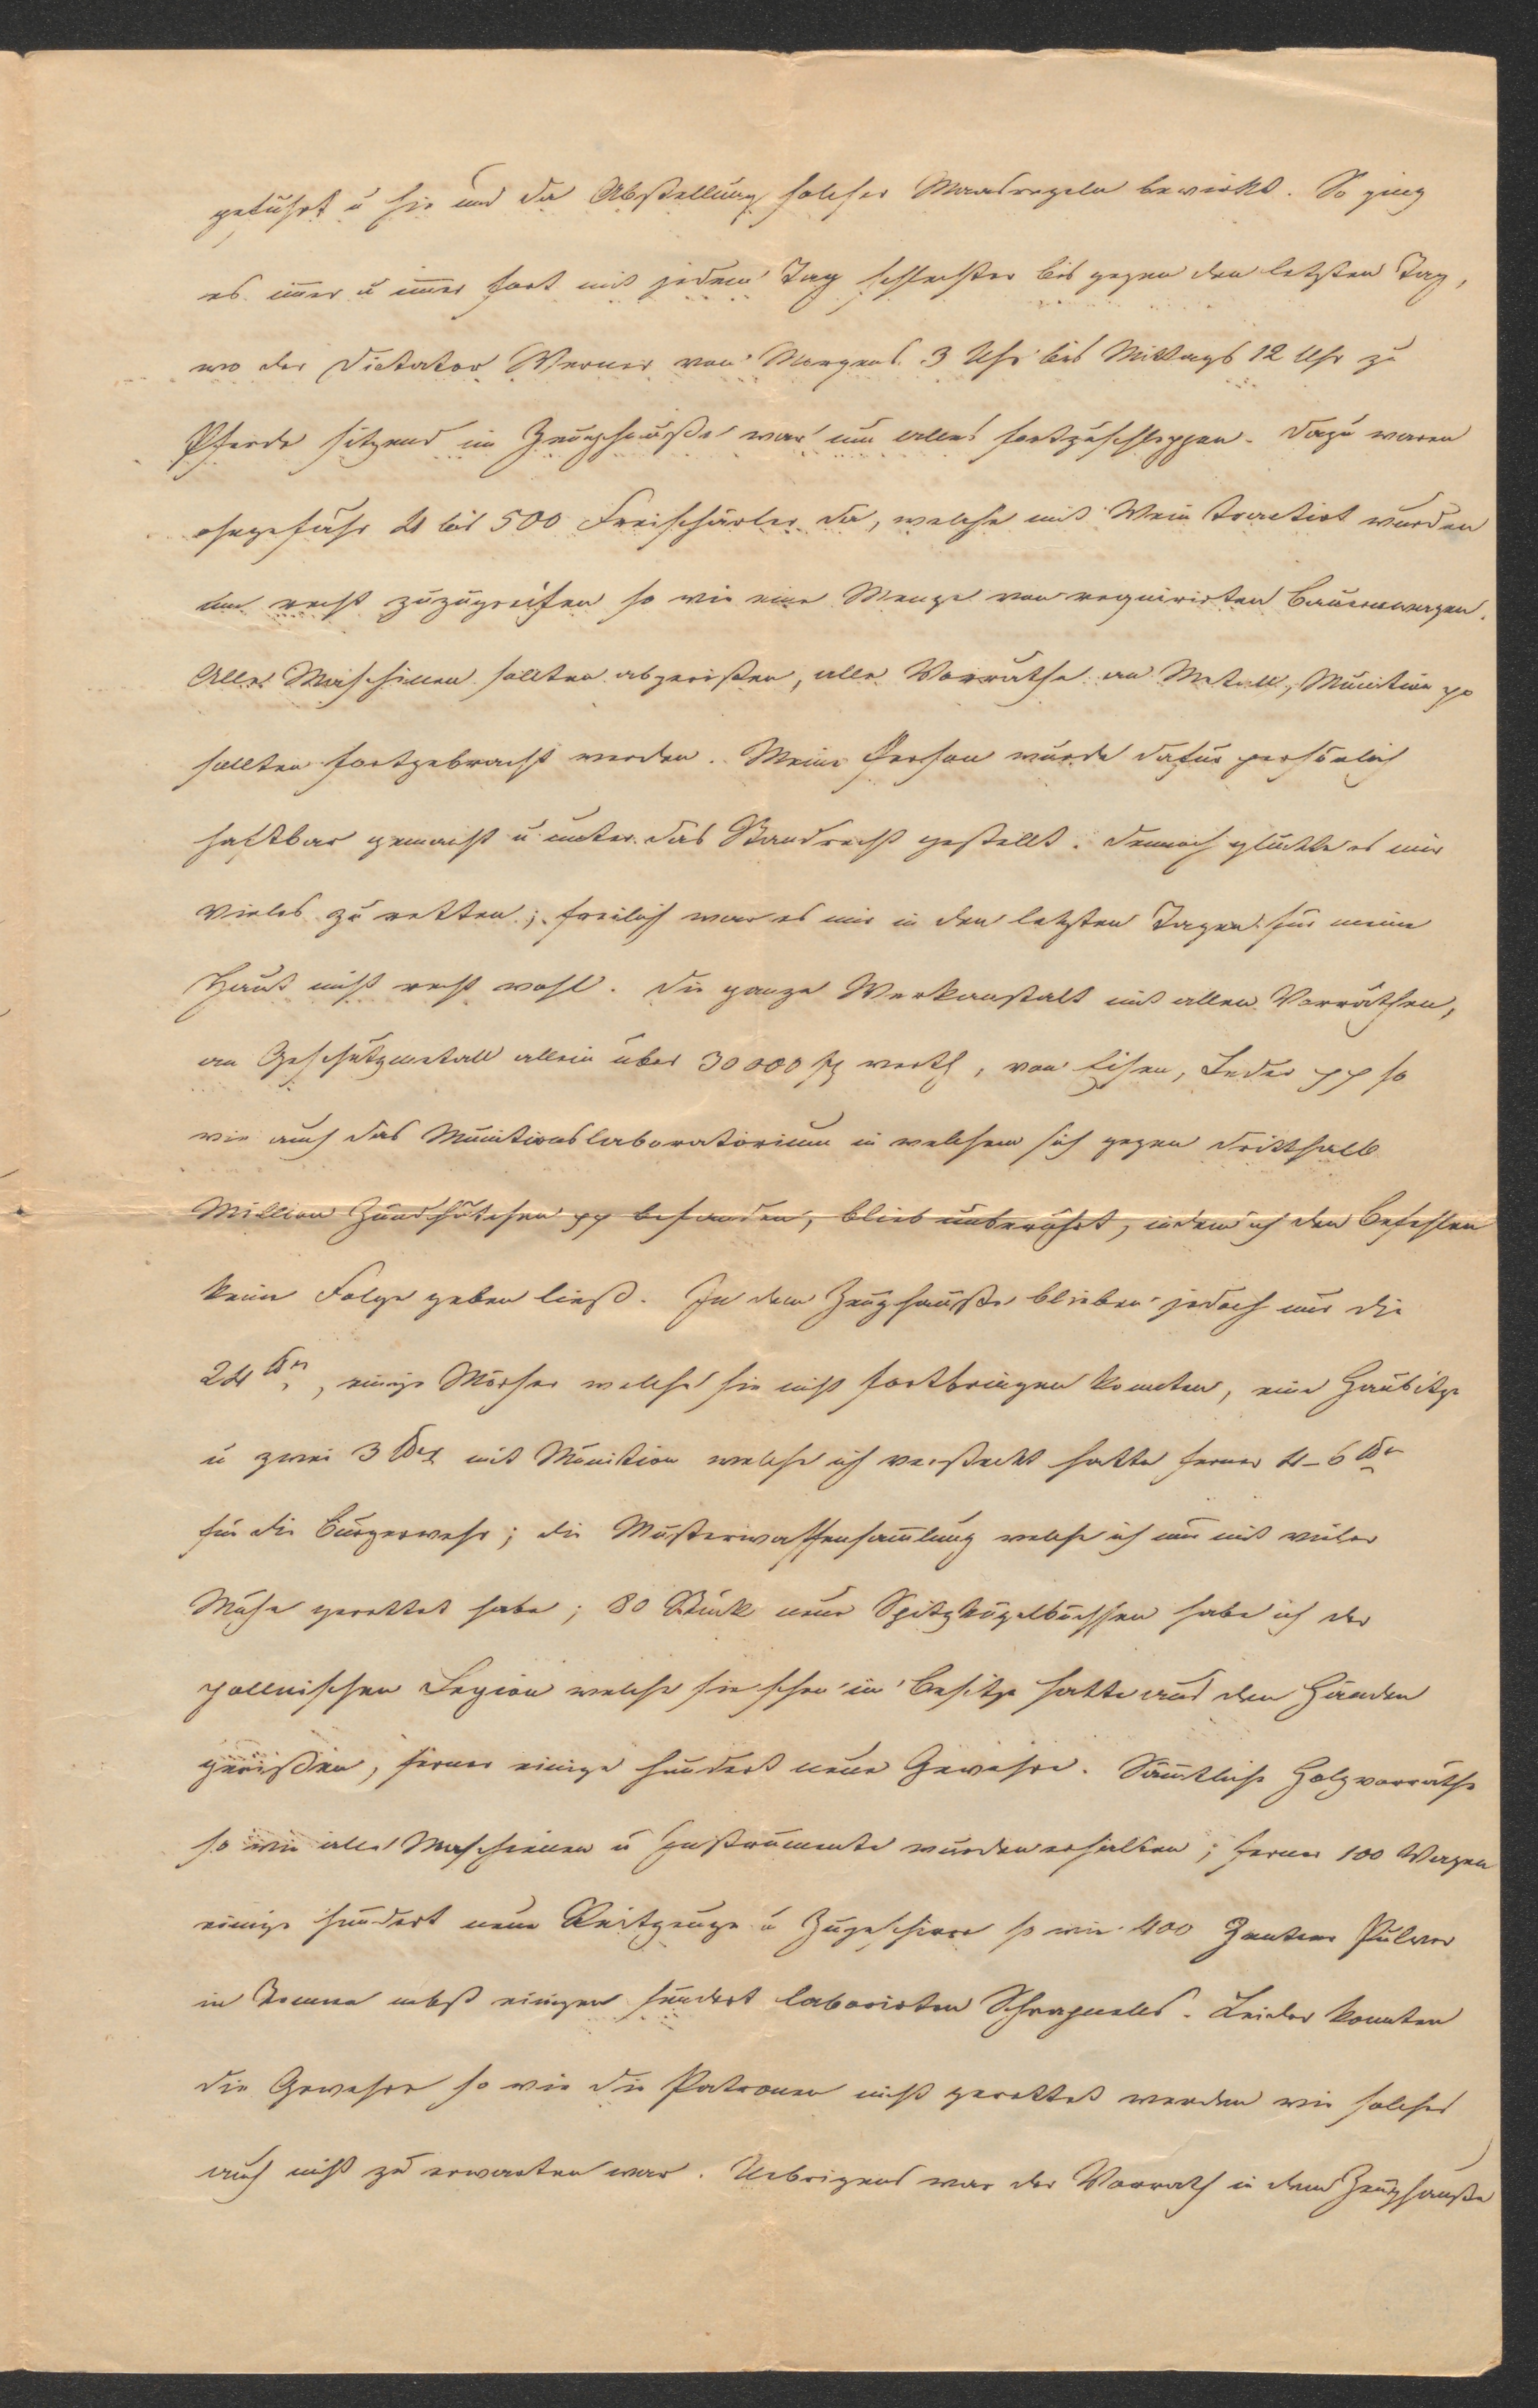 geführt u hie und da Abstellung solcher Maasregeln bewirkt. So ging
es imer u imer fort mit jedem Tag schlechter bis gegen den letzten Tag,
wo der Dictator Werner von Morgens 3 Uhr bis Mittags 12 Uhr zu
Pferde sitzend im Zeughauße war um alles fortzuschleppen. Dazu waren
ohngefähr 4 bis 500 Freischärler da, welche mit Wein tractirt wurden
um recht zuzugreifen so wie eine Menge von requirirten Bauernwagen.
Alle Maschinen sollten abgerißen, alle Vorräthe an Metall, Munition pp
sollten fortgebracht werden. Meine Person wurde dafür persönlich
haftbar gemacht u unter das Standrecht gestellt. Dennoch glückte es mir
vieles zu retten; freilich war es mir in den letzten Tagen für meine
Haut nicht recht wohl. Die ganze Werkanstalt mit allen Vorräthen,
an Geschützmetall allein über 30000 fl werth, von Eisen, Leder pp so
wie auch das Munitionslaboratorium in welchem sich gegen dritthalb
Million Zündhütchen pp befanden, blieb unberührt, indem ich den Befehlen
keine Folge geben ließ. In dem Zeughauße blieben jedoch nur die
24 ℔r, einige Mörser welche sie nicht fortbringen konnten, eine Haubitze
u zwei 3 ℔r mit Munition welche ich versteckt hatte ferner 4-6 ℔r
für die Bürgerwehr; die Musterwaffensamlung welche ich nur mit vieler
Mühe gerettet habe; 80 Stück neue Spitzkugelbüchsen habe ich der
pollnischen Legion welche sie schon in Besitze hatte aus den Händen
gerißen, ferner einige hundert neue Gewehre. Sämtliche Holzvorräthe
so wie alle Maschienen u Instrumente wurden erhalten; ferner 100 Wagen
einige hundert neue Reitzeuge u Zuggeschirre so wie 400 Zentner Pulver
in Tonnen nebst einigen hundert laborirten Schrapnels. Leider konnten
die Gewehre so wie die Patronen nicht gerettet werden wie solches
auch nicht zu erwarten war. Uebrigens war der Vorrath in dem Zeughauße